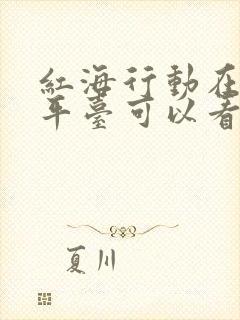 紅海行動在
平臺可以看
夏川